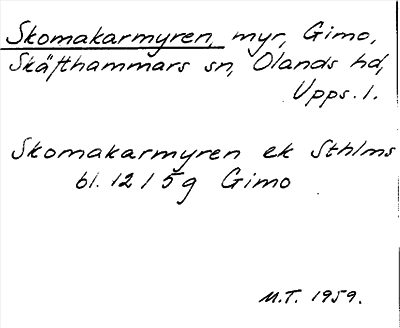 Skomakarmyren, myr, Gimo,
Skäfthammars sn, Olands hd,
Upps. l.
Skomakarmyren ek Sthlms
bl. 12 I 5g Gimo
M.T. 1959.